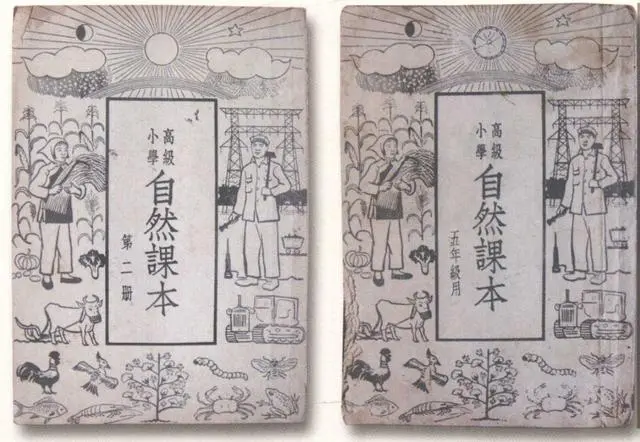 高級
小學
自然課本
第二册
高級
小學
自然課本
五年級用